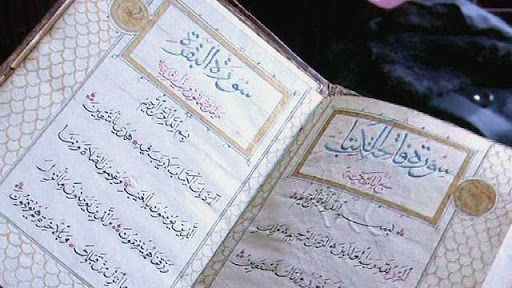 سورة فاتحة الكتاب
بسم الله الرحمن الرحيم
الحمد لله رب العالمين الرحمن الرحيم مالك
سورة البقرة
بسم الله الرحمن الرحيم
الم ذلك الكتاب لا ريب فيه هدى للمتقين
الذين يؤمنون بالغيب ويقيمون الصلاة ومما
رزقناهم ينفقون والذين يؤمنون بما انزل
اليك وما انزل من قبلك وبالآخرة هم يوقنون